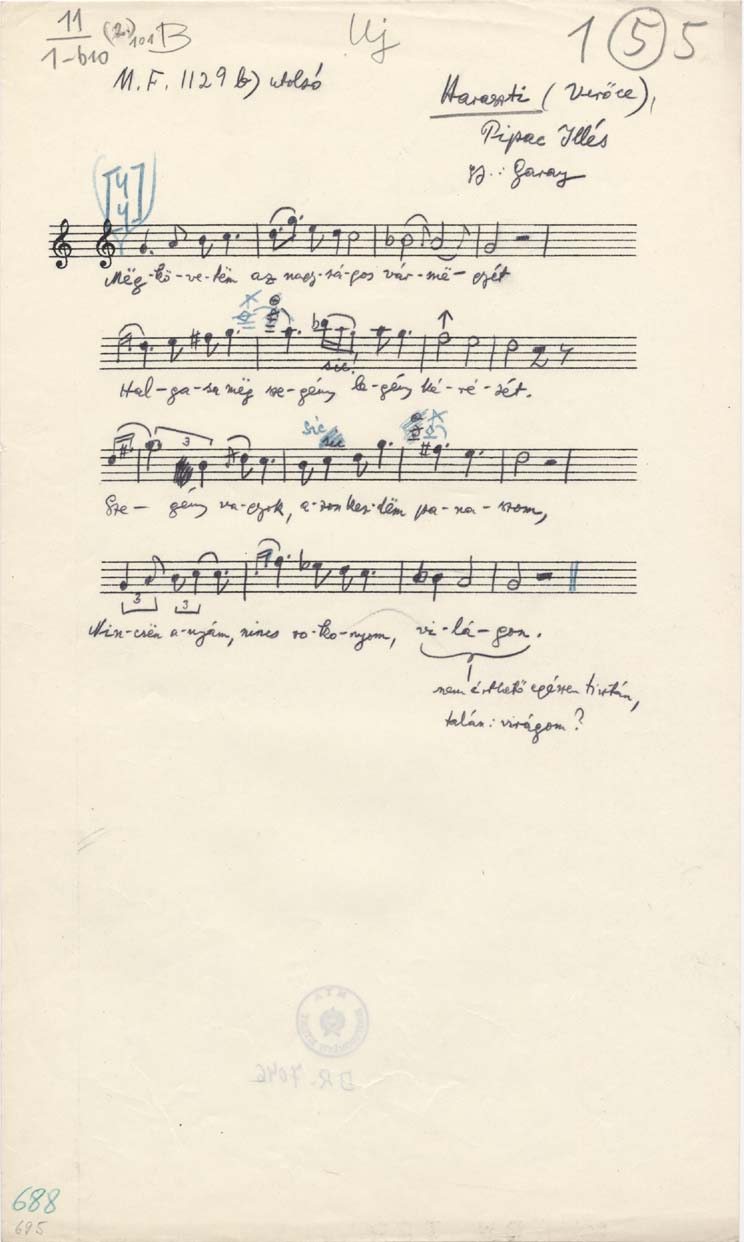 11 (2.) 101 B Uj 1 5 5
1-b10
M.F. 1129 b) utolsó
Haraszti (Verőce),
Pipac Illés
gy.: Garay
4
4
Mëg-kö-ve-tëm az nagy-sá-gos vár-më-gyét
sic!
Hal-ga-sa mëg sze-gény le-gény ké-ré-sét.
3 sic
Sze-gény va-gyok, a-zon kez-dëm pa-na-szom,
3 3
Nin-csën a-nyám, nincs ro-ko-nyom, vi-lá-gon.
nem érthető egészen tisztán,
talán: virágom?
D.R. 7046
688
695